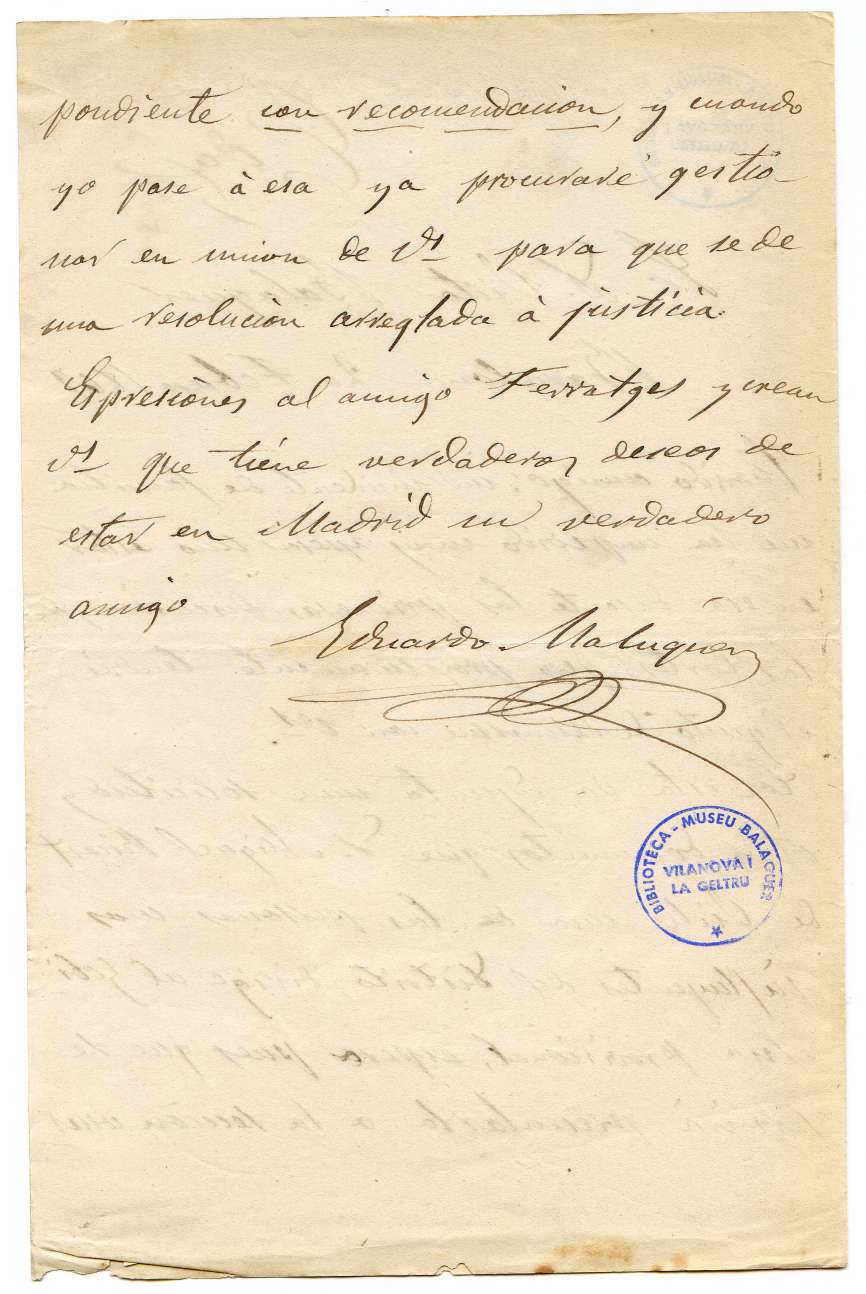 pondiente con recomendacion, y cuando
yo pase à esa ya procuraré gestio-
nar en union de Vs para que se de
una resolucion arreglada à justicia.
Espresiones al amigo Ferratges y crean
Vs que tiene verdaderos deseos de
estar en Madrid su verdadero
amigo
Eduardo Maluquer
BIBLIOTECA - MUSEU BALAGUER
VILANOVA I
LA GELTRU